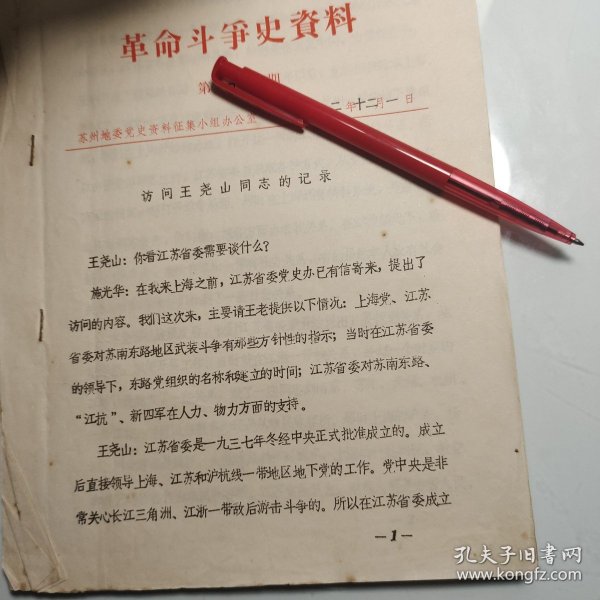 革命斗爭史資料
第 期
苏州地委党史资料征集小组办公室 二年十二月一日
访问王尧山同志的记录
王尧山：你看江苏省委需要谈什么？
施光华：在我来上海之前，江苏省委党史办已有信寄来，提出了
访问的内容。我们这次来，主要请王老提供以下情况：上海党、江苏
省委对苏南东路地区武装斗争有那些方针性的指示；当时在江苏省委
的领导下，东路党组织的名称和建立的时间；江苏省委对苏南东路、
“江抗”、新四军在人力、物力方面的支持。
王尧山：江苏省委是一九三七年冬经中央正式批准成立的。成立
后直接领导上海、江苏和沪杭线一带地区地下党的工作。党中央是非
常关心长江三角洲、江浙一带敌后游击斗争的。所以在江苏省委成立
—1—
孔夫子旧书网
www.kongfz.com